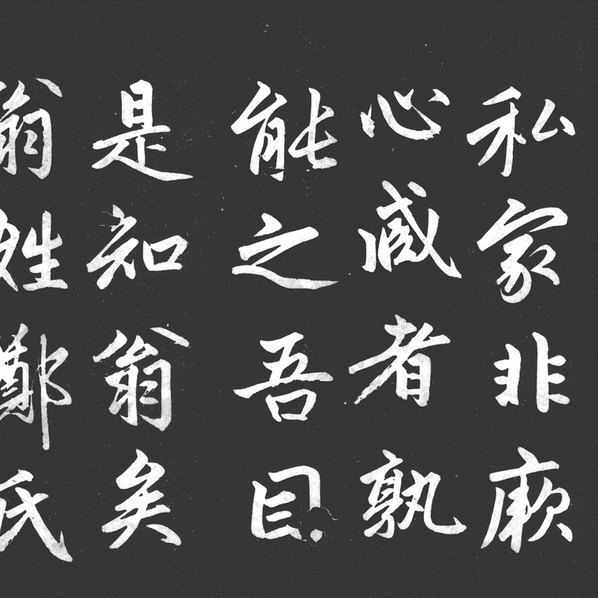 私家非厥
心臧者孰
能之吾目
是知翁矣
翁姓鄭氏